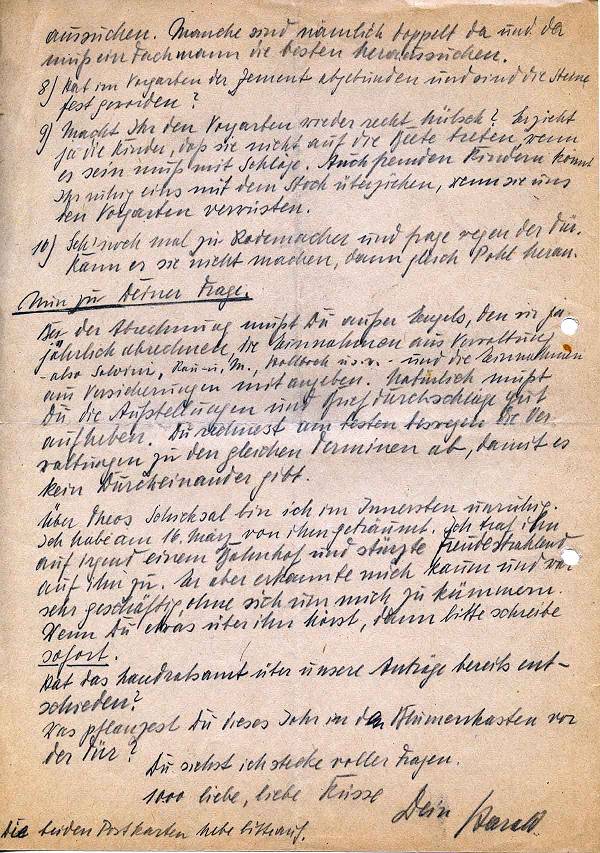 aussuchen. Manche sind nämlich doppelt da und da
muß ein Fachmann die besten heraussuchen.
8) Hat im Vorgarten der Zement abgebunden und sind die Steine
fest geworden?
9) Macht Ihr den Vorgarten wieder recht hübsch? Erzieht
ja die Kinder, daß sie nicht auf die Beete treten, wenn
es sein muß mit Schläge. Auch fremden Kindern könnt
Ihr ruhig eins mit dem Stock überziehen, wenn sie uns
den Vorgarten verwüsten.
10) noch mal zu Rademacher und frage wegen der Tür.
Kann er sie nicht machen, dann gleich Pohl heran.
Nun zu Deiner Frage.
Bei der Abrechnung mußt Du außer Engels, den wir ja
jährlich abrechnen, die Einnahmen aus Verwaltung
- also u. M., u.s.w. - und die Einnahmen
aus Versicherungen mit angeben. Natürlich mußt
Du die Aufstellungen und Briefdurchschläge gut
aufheben. Du rechnest am besten deswegen die Ver
waltungen zu den gleichen Terminen ab, damit es
kein Durcheinander gibt.
Über Theos Schicksal bin ich im Innersten unruhig.
Ich habe am 16. März von ihm geträumt. Ich traf ihn
auf irgend einem Bahnhof und stürzte freudestrahlend
auf ihn zu. Er aber erkannte mich kaum und war
sehr geschäftig, ohne sich um mich zu kümmern.
Wenn Du etwas über ihn hörst, dann bitte schreibe
sofort.
Hat das Landratsamt über unsere Anträge bereits ent-
schieden?
Was pflanzest Du dieses Jahr in den Blumenkasten vor
der Tür?
Du siehst ich stecke voller Fragen.
1000 liebe, liebe Küsse
Dein Harald
Die beiden Postkarten hebe bitte auf.